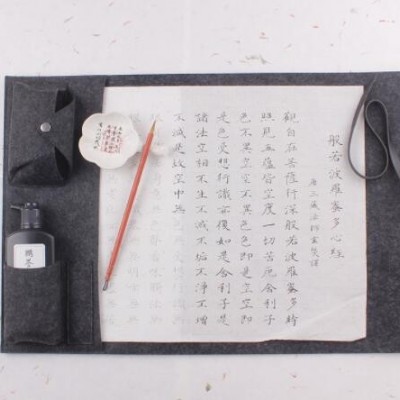 般若波羅蜜多心經
唐三藏法師玄奘譯
觀自在菩薩行深般若波羅蜜多時
照見五蘊皆空度一切苦厄舍利子
色不異空空不異色色即是空空即
是色受想行識亦復如是舍利子是
諸法空相不生不滅不垢不淨不增
不減是故空中無